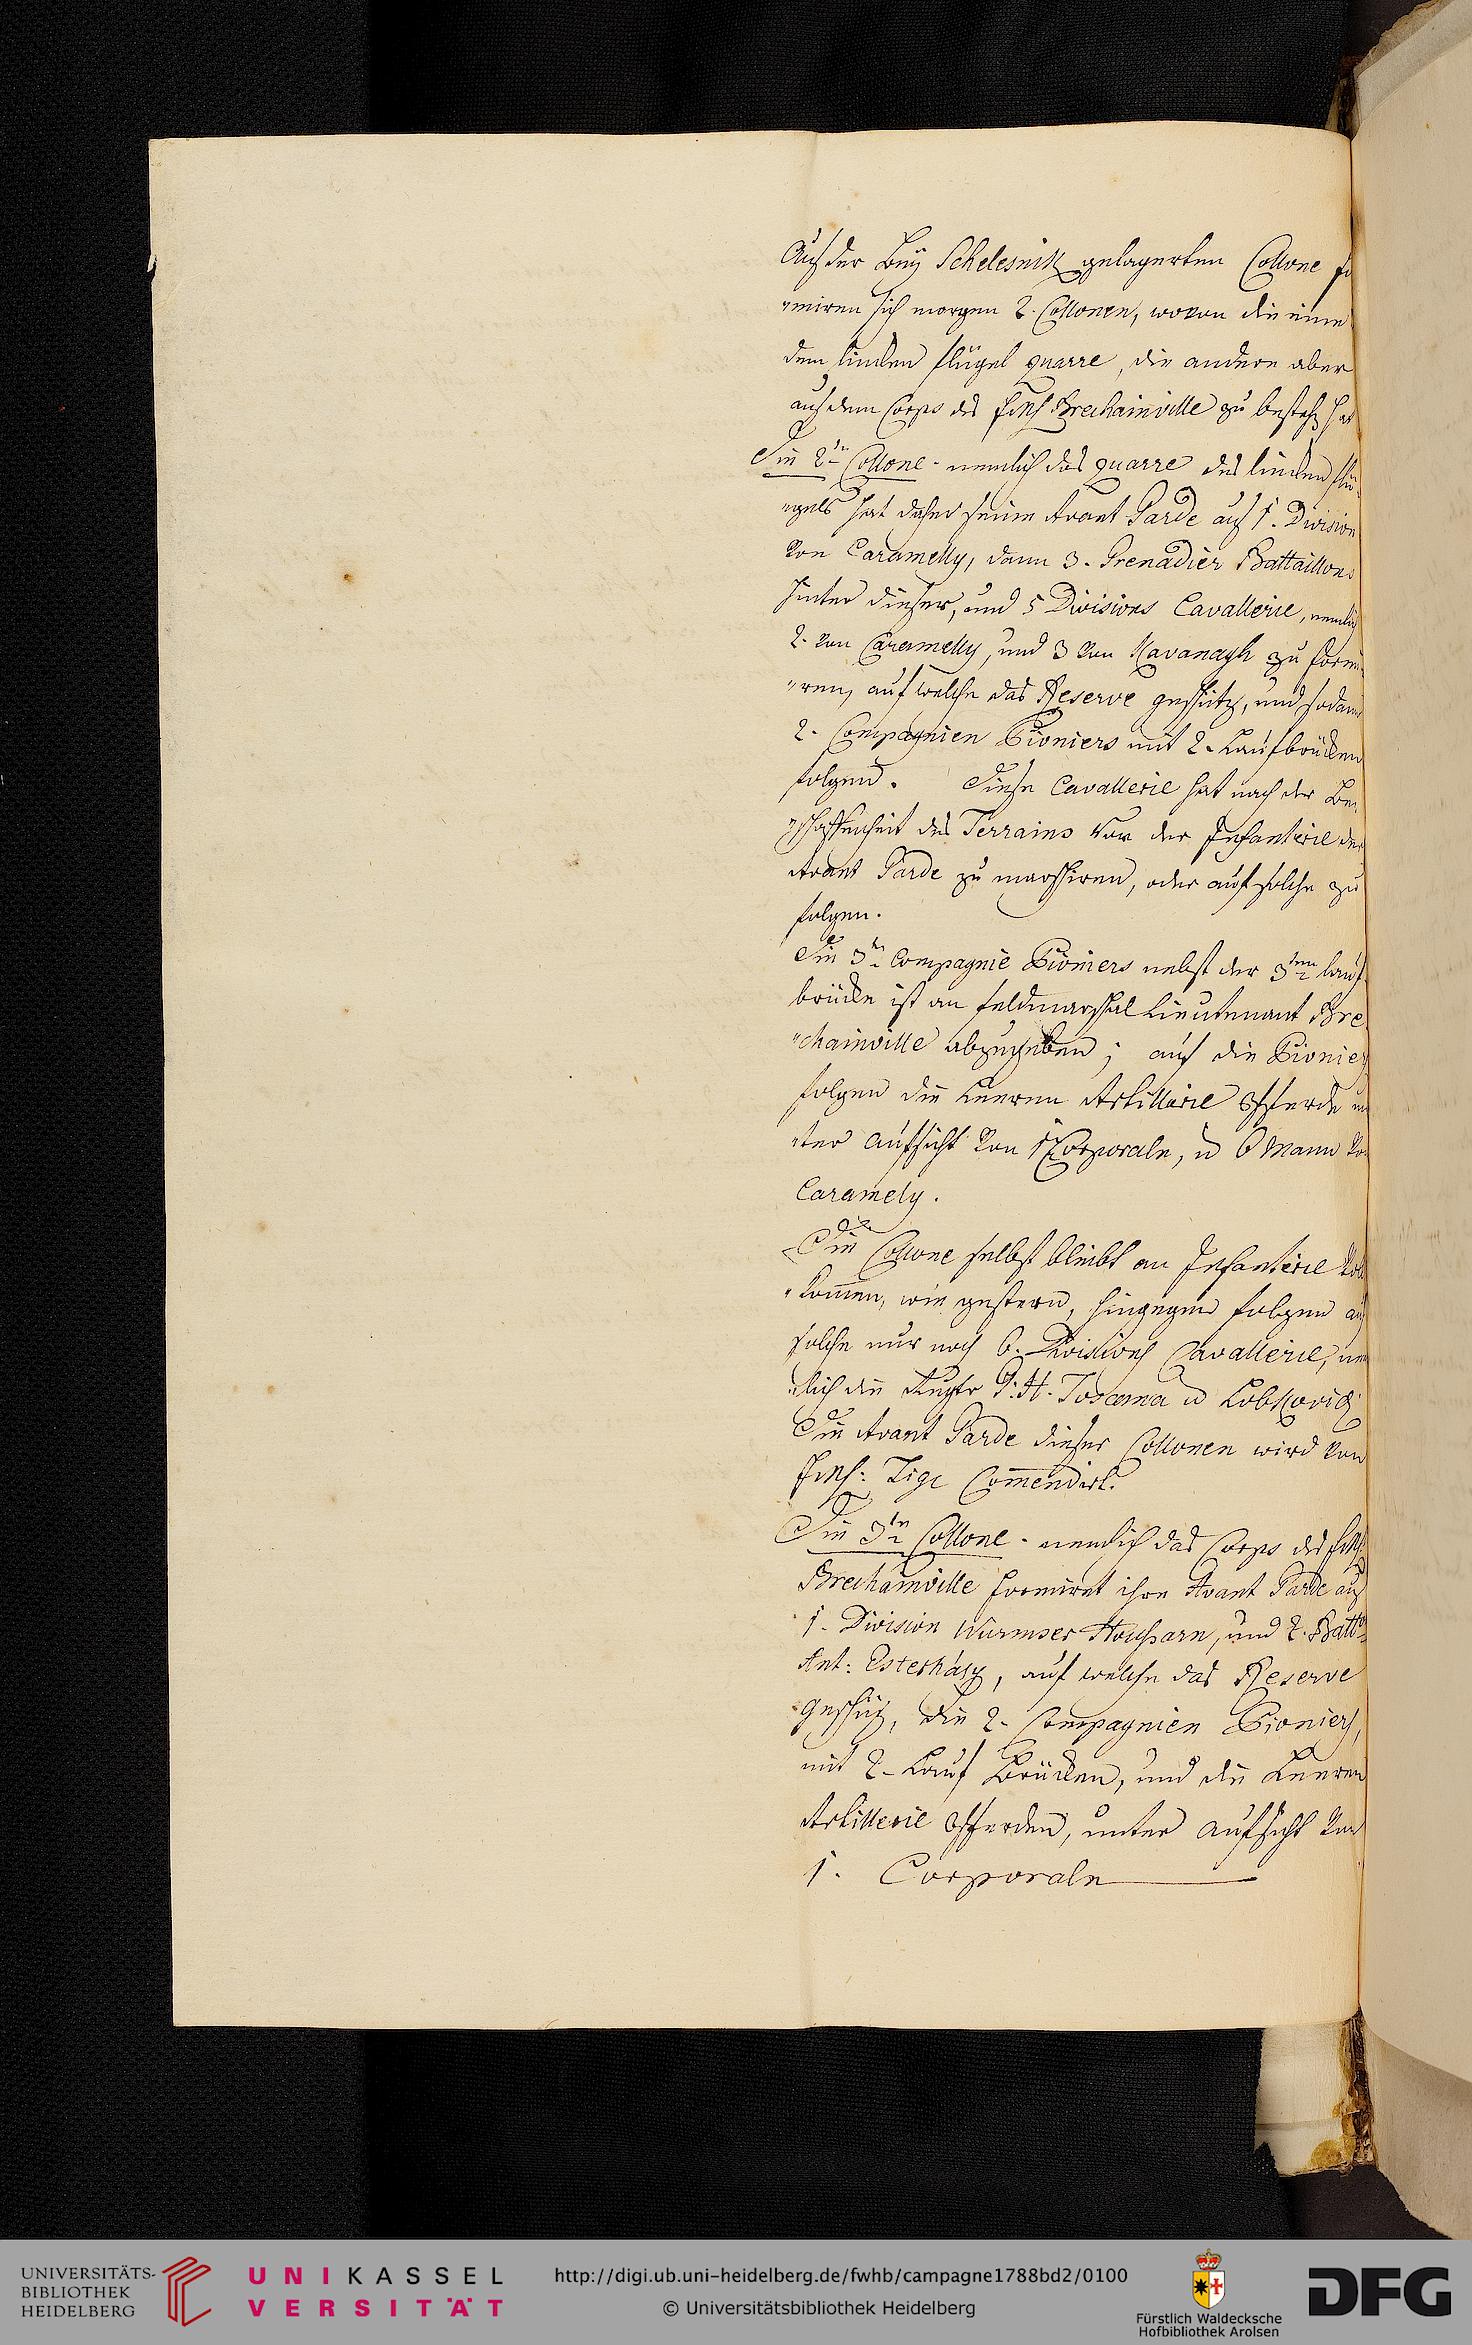 Aus der bey Schelesnik gelagerten Collone fo
"rmiren sich morgen 2. Collonen, wovon die eine
dem linken flügel quarre, die andere aber
aus dem Corps des Brechainville zu besteh hat
Die 2te Collone - nemlich das quarre des linken flü
"gels hat daher seine Avant Garde aus 1. Division
von Caramelly, dann 3. Grenadier Battaillons
hinter dieser, und 5 Divisions Cavallerie, nemlich
2. von Caramelly, und 3 von Kavanagh zu formi
"ren, auf welche das Reserve geschütz, und sodann
2. Compagnien Pioniers mit 2. Laufbrücken
folgen. Diese Cavallerie hat nach der Be
"schaffenheit des Terrains vor der Infanterie der
Avant Garde zu marschiren, oder auf solche zu
folgen.
Die 3te Compagnie Pioniers nebst der 3ten lauf
brücke ist an feldmarschal Lieutenant Bre
"chainville abzugeben; auf die Pionier
folgen die Leeren Artillerie Pferde un
"ter aufsicht von 1 Corporaln, u 6 Mann vo
Caramely.
Die Collone selbst bleibt an Infanterie vol
"komen, wie gestern, hingegen folgen auf
solche nur noch 6. Divisions Cavallerie, nem
"lich die Regtr G: H. Toscana u Lobkovicz
Die Avant Garde dieser Collonen wird von
Zige Comendirt.
Die 3te Collone - nemlich das Corps des
Brechainville formiret ihre Avant Garde aus
1. Division Wurmser Houssarn, und 2. Batt:
Ant: Esterházy, auf welche das Reserve
Geschüz, die 2. Compagnien Pioniers,
mit 2. Lauf Brücken, und die Leeren
Artillerie Pferden, unter Aufsicht von
1. Corporaln
UNIVERSITÄTS-
BIBLIOTHEK
HEIDELBERG
UNIKASSEL
VERSITÄT
http://digi.ub.uni-heidelberg.de/fwhb/campagne1788bd2/0100
© Universitätsbibliothek Heidelberg
Fürstlich Waldecksche
Hofbibliothek Arolsen
DFG